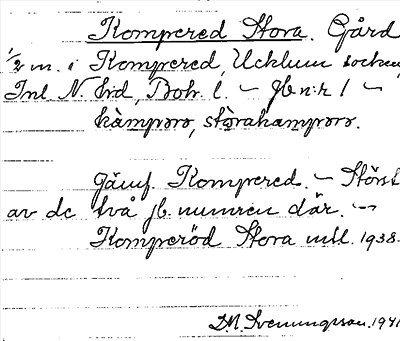 Kompered Stora. Gård
1/2 m. i Kompered, Ucklum socken,
Inl. N. hd, Boh. l. — Jb n:r 1 —
kàmpørø, stòrahampørø.
Jämf. Kompered. — Störst
av de två jb. numren där. —
Komperöd Stora mtl. 1938.
D.M. Svenungsson. 1941